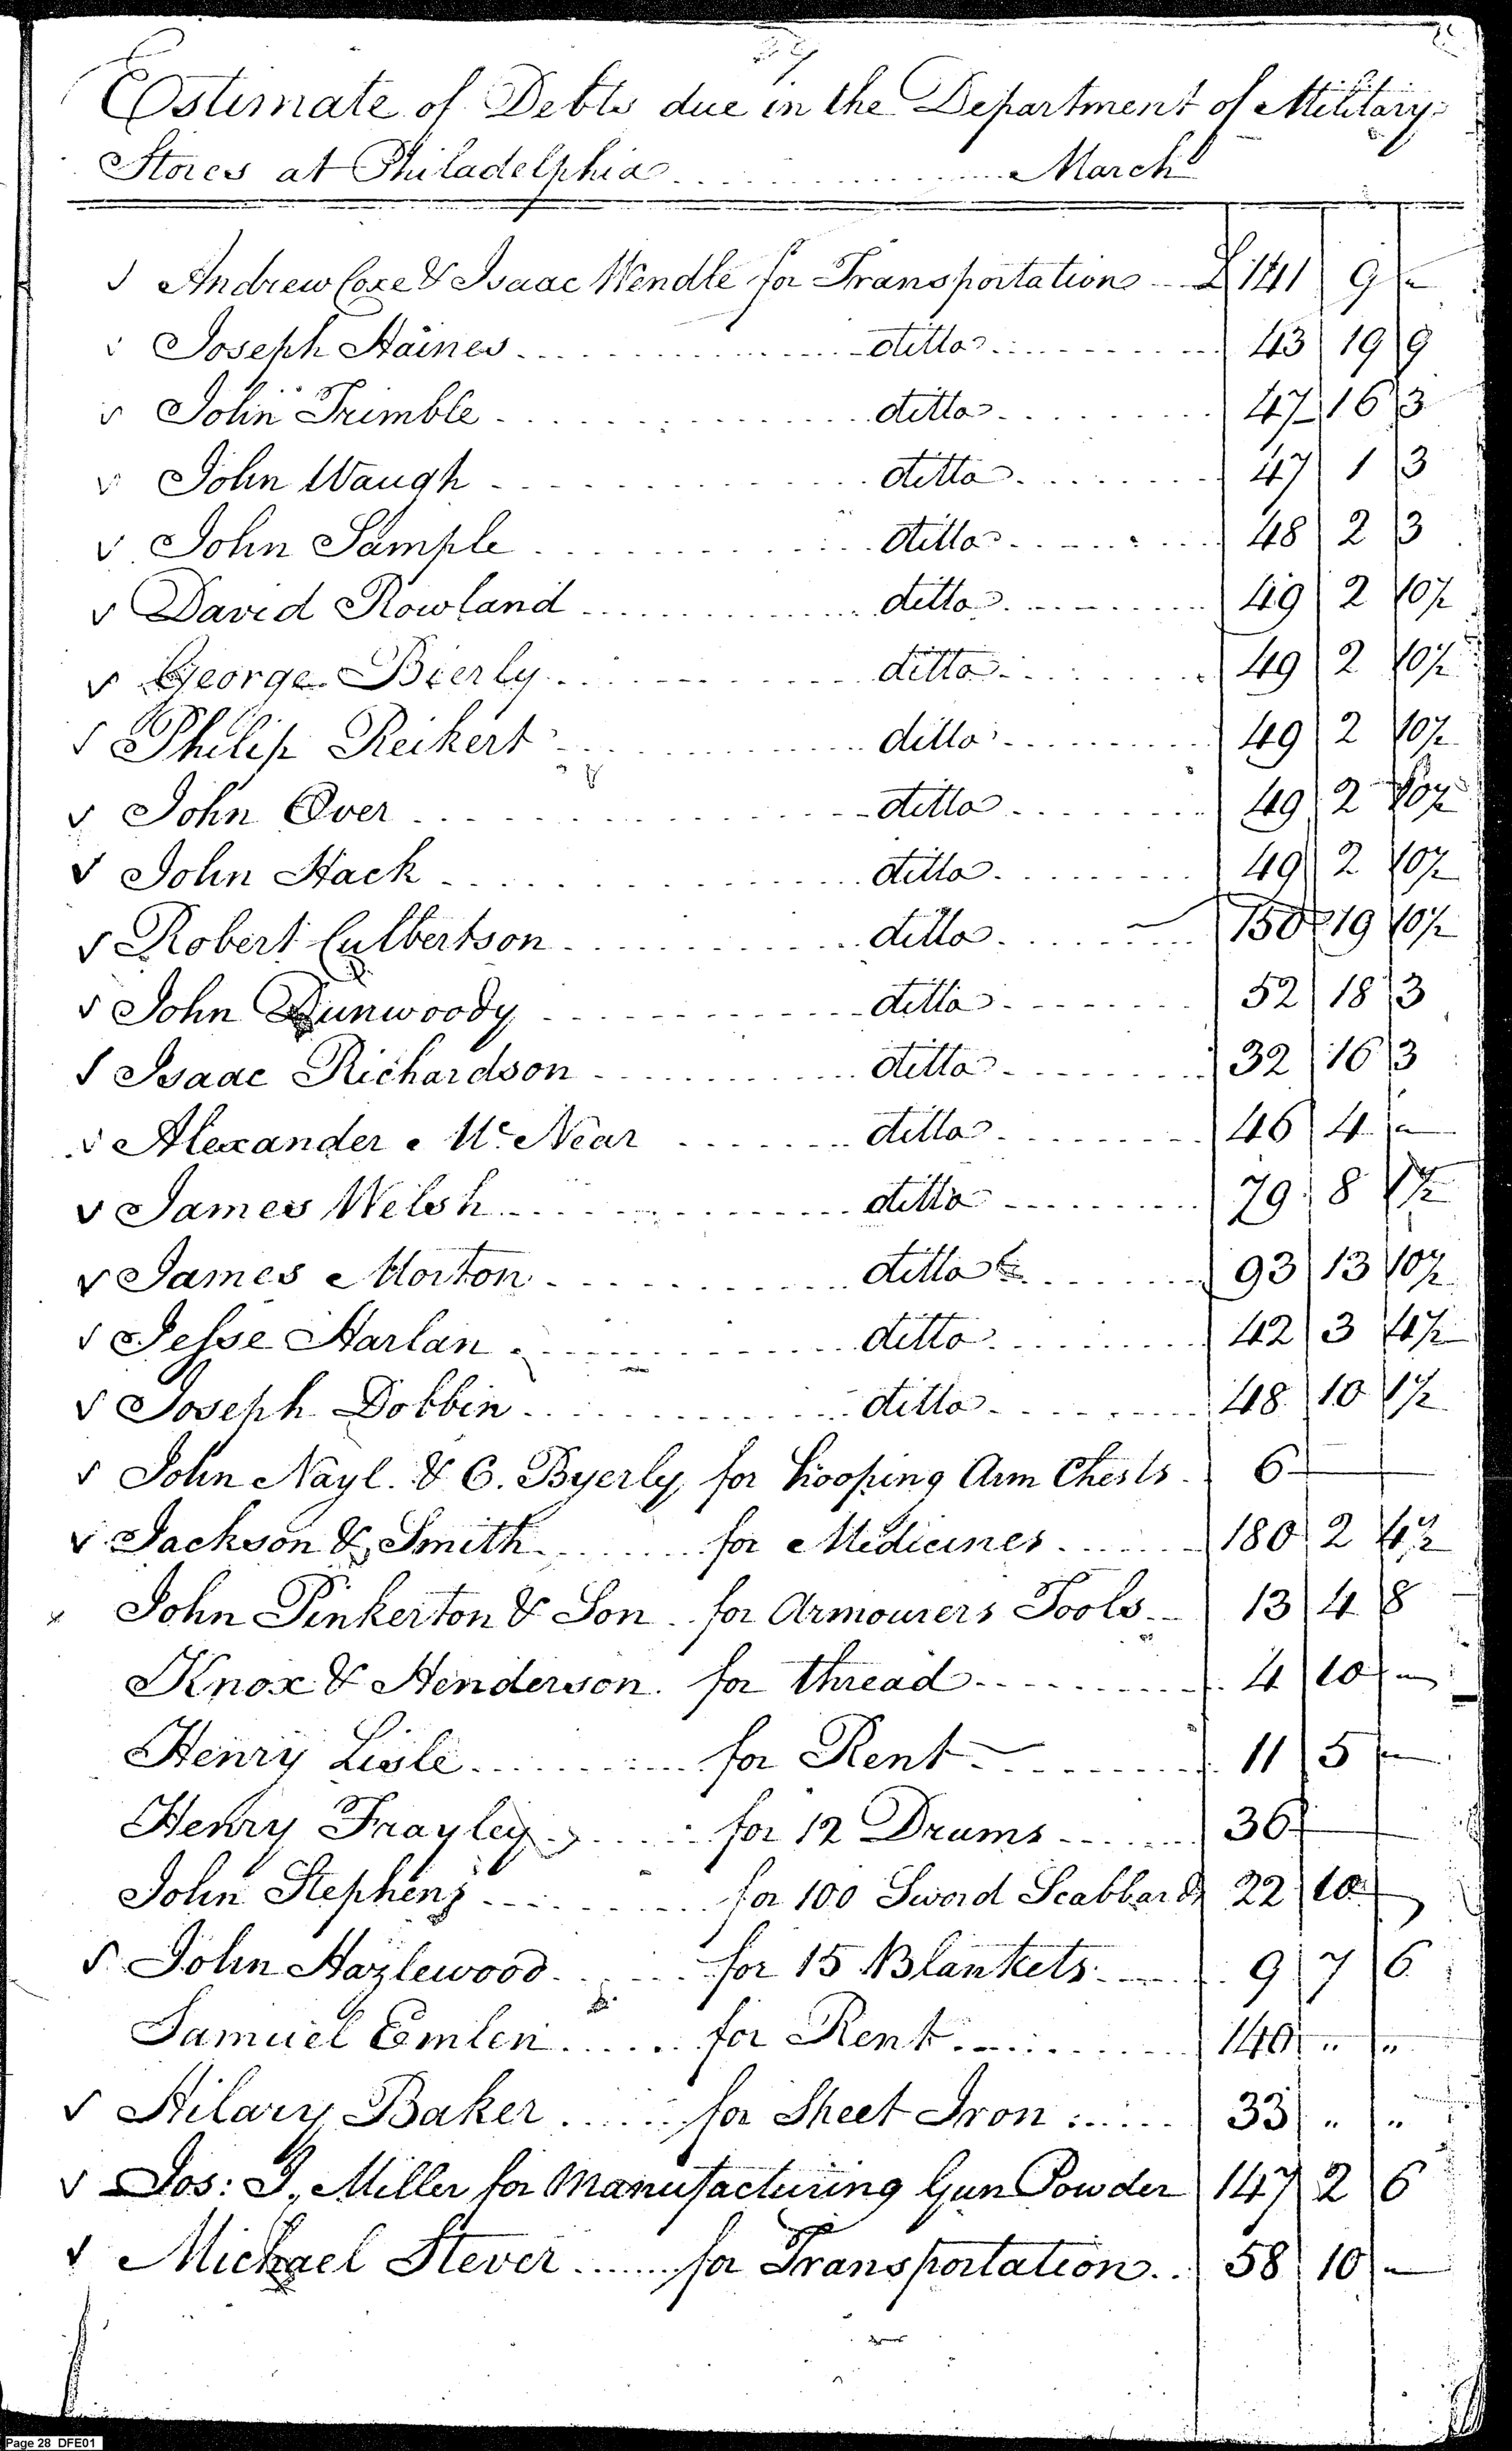 Estimate of Debts due in the Department of Military
Stores at Philadelphia ............ March
✓ Andrew Coxe & Isaac Wendle for Transportation £ 141 9 "
✓ Joseph Haines ditto 43 19 9
✓ John Trimble ditto 47 16 3
✓ John Waugh ditto 47 1 3
✓ John Sample ditto 48 2 3
✓ David Rowland ditto 49 2 10½
✓ George Bierly ditto 49 2 10½
✓ Philip Reikert ditto 49 2 10½
✓ John Over ditto 49 2 10½
✓ John Hack ditto 49 2 10½
✓ Robert Culbertson ditto 150 19 10½
✓ John Dunwoody ditto 52 18 3
✓ Isaac Richardson ditto 32 16 3
✓ Alexander McNear ditto 46 4 "
✓ James Welsh ditto 79 8 1½
✓ James Morton ditto 93 13 10½
✓ Jesse Harlan ditto 42 3 4½
✓ Joseph Dobbin ditto 48 10 1½
✓ John Nayl. & C. Byerly for hooping Arm Chests 6
✓ Jackson & Smith for Medicines 180 2 4½
x John Pinkerton & Son for Armourers Tools 13 4 8
Knox & Henderson for thread 4 10 "
Henry Lisle for Rent 11 5 "
Henry Frayley for 12 Drums 36
John Stephens for 100 Sword Scabbards 22 10
✓ John Hazlewood for 15 Blankets 9 7 6
Samuel Emlen for Rent 140 " "
✓ Hilary Baker for Sheet Iron 33 " "
✓ Jos: J. Miller for Manufacturing Gun Powder 147 2 6
✓ Michael Stever for Transportation 58 10 "
Page 28 DFE01